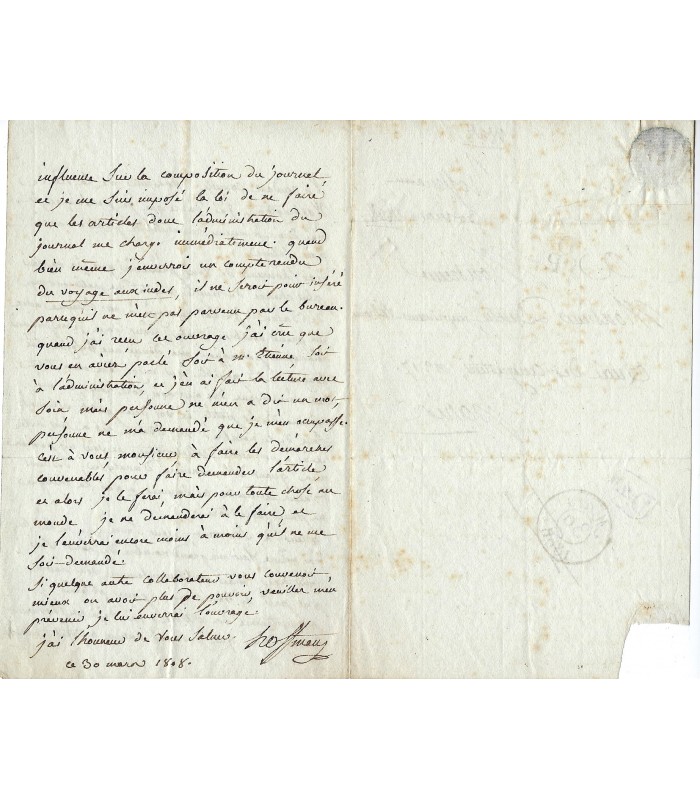 influence sur la composition du journal
et je me suis imposé la loi de ne faire
que les articles dont l'administration du
journal me charge immédiatement. quand
bien même j'enverrois un compte rendu
du voyage aux indes, il ne seroit point inséré
parcequ'il ne m'est pas parvenu par le bureau.
quand j'ai recu cet ouvrage j'ai cru que
vous en aviez parlé soit à mr. Etienne soit
à l'administration, et j'en ai fait la lecture avec
soin mais personne ne m'en a dit un mot,
personne ne m'a demandé que je m'en occupasse.
c'est à vous monsieur à faire les démarches
convenables pour faire demander l'article
et alors je le ferai, mais pour toute chose au
monde je ne demanderai à le faire et
je l'enverrai encore moins à moins qu'il ne me
soit demandé.
Si quelque autre collaborateur vous convenoit
mieux ou avoit plus de pouvoir, veuillez m'en
prévenir je lui enverrai l'ouvrage.
j'ai l'honneur de vous saluer. hoffman
ce 30 mars 1808.